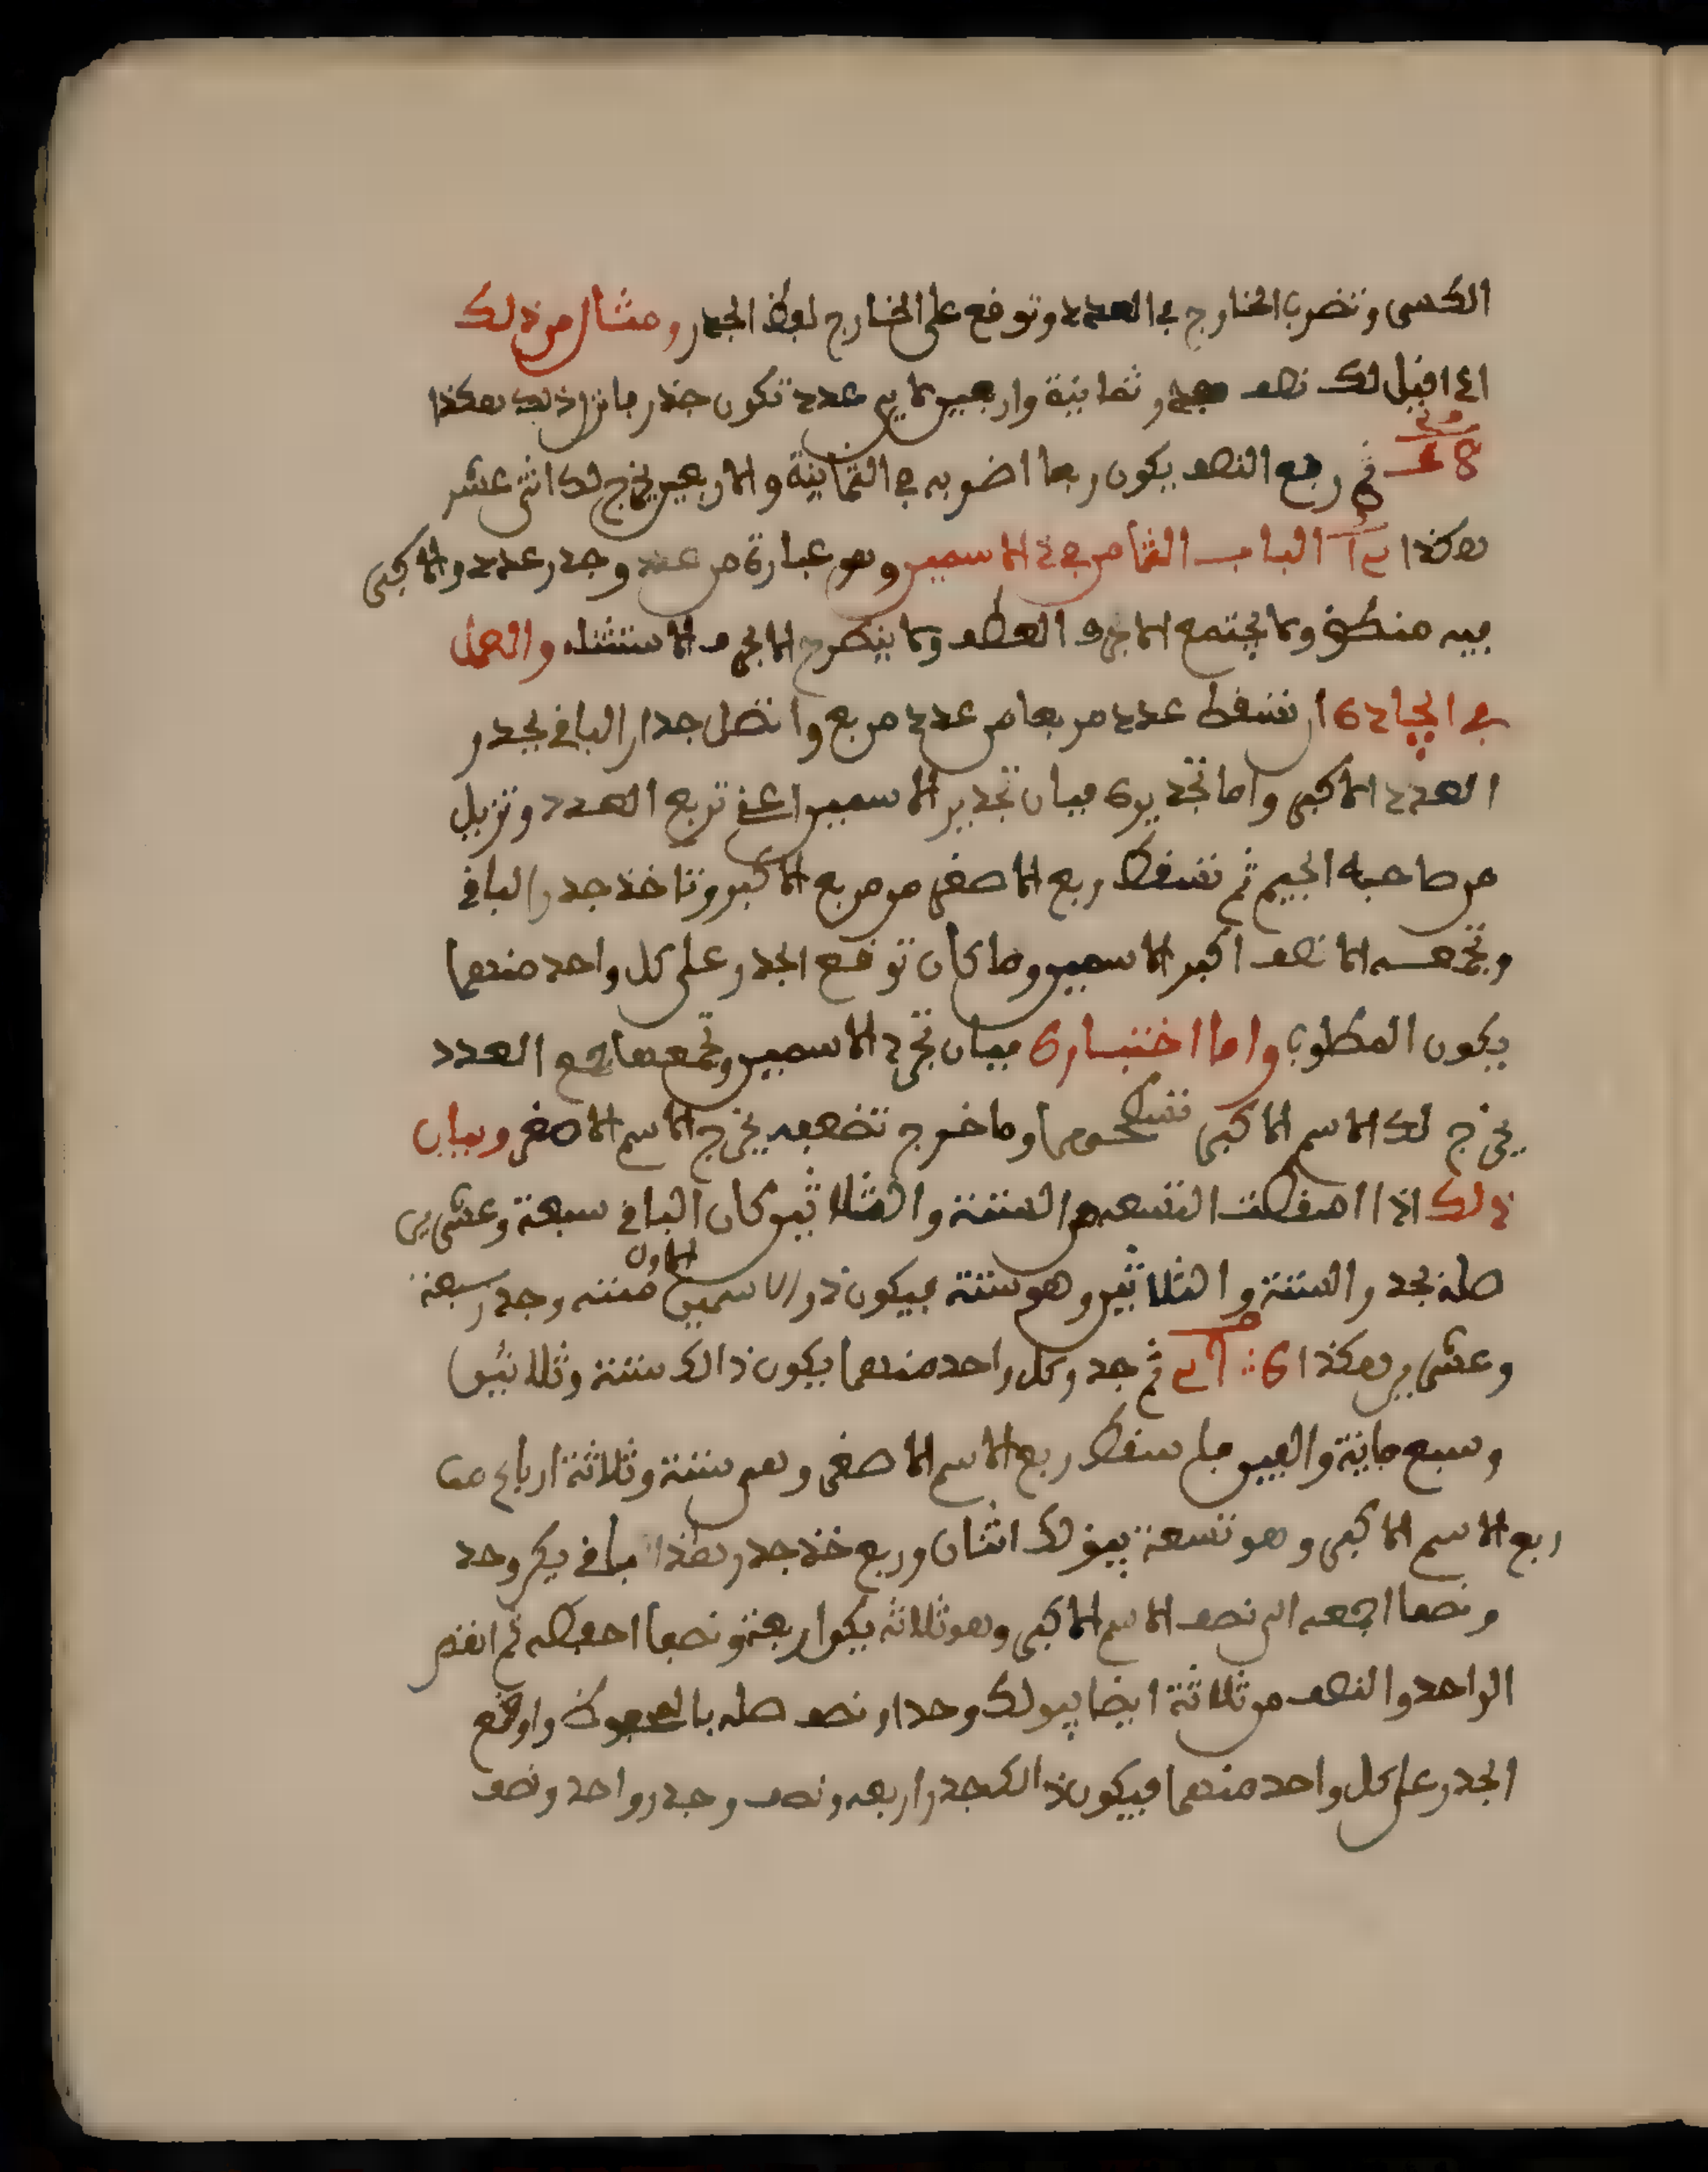 الكسر وتضرب الخارج في العدد وتوقع على الخارج لفظ الجدر ومثال من ذلك
اذا قيل لك نصف جدر ثمانية واربعين لاي عدد تكون جذر فانزل ذلك هكذا
8ع فربع النصف يكون ربعا اضربه في الثمانية والاربعين يخرج لك اثنى عشر
هكذا الباب الثامن في ذي الاسمين وهو عبارة من عدد وجدر عدد والاكبر
فيه منطق ولا يجتمع الا بحرف العطف ولا ينطرح الا بحرف الاستثناء والعمل
في ايجاده ان تسقط عدد مربعا من عدد مربع واتصل جدار الباقي بجدر
العدد الاكبر واما تجديره فبان تجدير الاسمين اعني تربع العدد وتزيل
من صاحبه الجيم ثم تسقط ربع الاصغر من مربع الاكبر وتاخذ جدر الباقي
وتجمعه الا نصف اكبر الاسمين وما كان توقع الجدر على كل واحد منهما
يكون المطلوب واما اختباره فبان تجرد الاسمين وتجمعها مع العدد
يخرج لك الاسم الاكبر وما خرج تضعيفه يخرج الاسم الاصغر وبيان
ذلك اذا اسقطت التسعه من الستة والثلاثين كان الباقي سبعة وعشرين
صله بجدر الستة والثلاثين وهو ستة فيكون ذو الاسمين الاول ستة وجدر سبعة
وعشرين هكذا 6 ثم جدر كل واحد منهما يكون ذالك ستة وثلاثين
وسبع ماية والفين فلسقط ربع الاسم الاصغر وهي ستة وثلاثة ارباع من
ربع الاسم الاكبر وهو تسعة يبق لك اثنان وربع خذ جدر هذا الباقي يكن وحد
ونصفا اجمعه الى نصف الاسم الاكبر وهو ثلاثة يكون اربعة ونصفا احفظه ثم انقص
الواحد والنصف من ثلاثة ايضا يبق لك وحدا ونصف صله بالمحفوظ واوقع
الجدر على كل واحد منهما فيكون ذالك جدر اربعه ونصف وجدر واحد ونصف